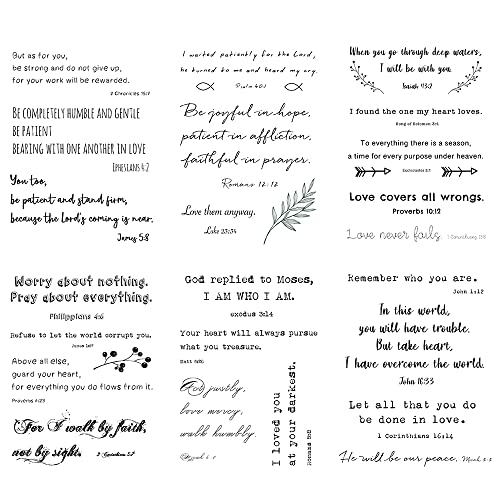 But as for you,
be strong and do not give up,
for your work will be rewarded.
2 Chronicles 15:7
Be completely humble and gentle
be patient
bearing with one another in love
Ephesians 4:2
You too,
be patient and stand firm,
because the Lord's coming is near.
James 5:8
I waited patiently for the Lord,
he turned to me and heard my cry.
Psalm 40:1
Be joyful in hope,
patient in affliction,
faithful in prayer.
Romans 12:12
Love them anyway.
Luke 23:34
When you go through deep waters,
I will be with you
Isaiah 43:2
I found the one my heart loves.
Song of Solomon 3:4
To everything there is a season,
a time for every purpose under heaven.
Ecclesiastes 3:1
Love covers all wrongs.
Proverbs 10:12
Love never fails.
1 Corinthians 13:8
Worry about nothing.
Pray about everything.
Philippians 4:6
Refuse to let the world corrupt you.
James 1:27
Above all else,
guard your heart,
for everything you do flows from it.
Proverbs 4:23
For I walk by faith,
not by sight.
2 Corinthians 5:7
God replied to Moses,
I AM WHO I AM.
exodus 3:14
Your heart will always pursue
what you treasure.
Matt 6:21
Act justly,
love mercy,
walk humbly.
Micah 6:8
I loved you
at your darkest.
Romans 5:8
Remember who you are.
John 1:12
In this world,
you will have trouble.
But take heart,
I have overcome the world.
John 16:33
Let all that you do
be done in love.
1 Corinthians 16:14
He will be our peace.
Micah 5:5